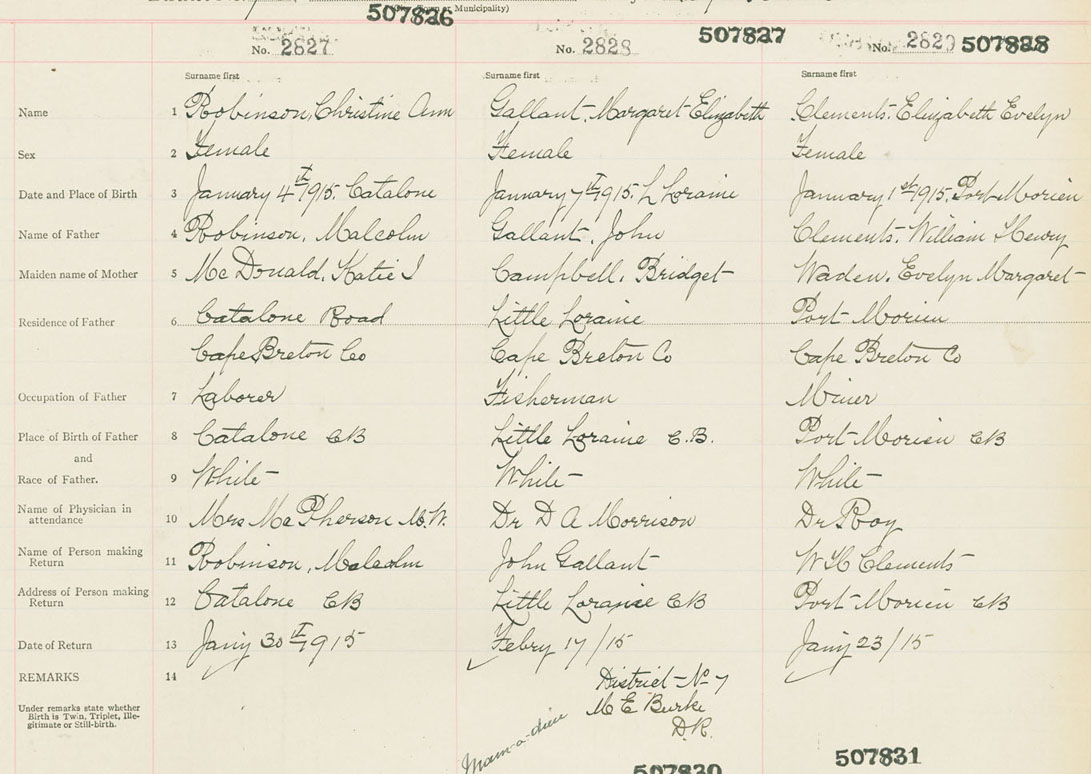 (City, Town or Municipality)
507826
No. 2827 No. 2828 507827 No. 2829 507828
Surname first Surname first Surname first
Name 1 Robinson, Christine Ann Gallant. Margaret Elizabeth Clements. Elizabeth Evelyn
Sex 2 Female Female Female
Date and Place of Birth 3 January 4th 1915. Catalone January 7th 1915. L Loraine January 1st 1915. Port Morien
Name of Father 4 Robinson, Malcolm Gallant. John Clements. William Henry
Maiden name of Mother 5 Mc Donald. Katie J Campbell. Bridget Waden. Evelyn Margaret
Residence of Father 6 Catalone Road Little Loraine Port Morien
Cape Breton Co Cape Breton Co Cape Breton Co
Occupation of Father 7 Laborer Fisherman Miner
Place of Birth of Father 8 Catalone CB Little Loraine C.B. Port Morien CB
and
Race of Father. 9 White White White
Name of Physician in attendance 10 Mrs Mc Pherson M.W. Dr D A Morrison Dr Roy
Name of Person making Return 11 Robinson, Malcolm John Gallant W H Clements
Address of Person making Return 12 Catalone CB Little Loraine CB Port Morien CB
Date of Return 13 Jany 30th 1915 Febry 17/15 Jany 23/15
REMARKS 14 District No 7
Under remarks state whether M E Burke
Birth is Twin, Triplet, Ille-
gitimate or Still-birth. D.R.
Main-a-dieu
507830 507831